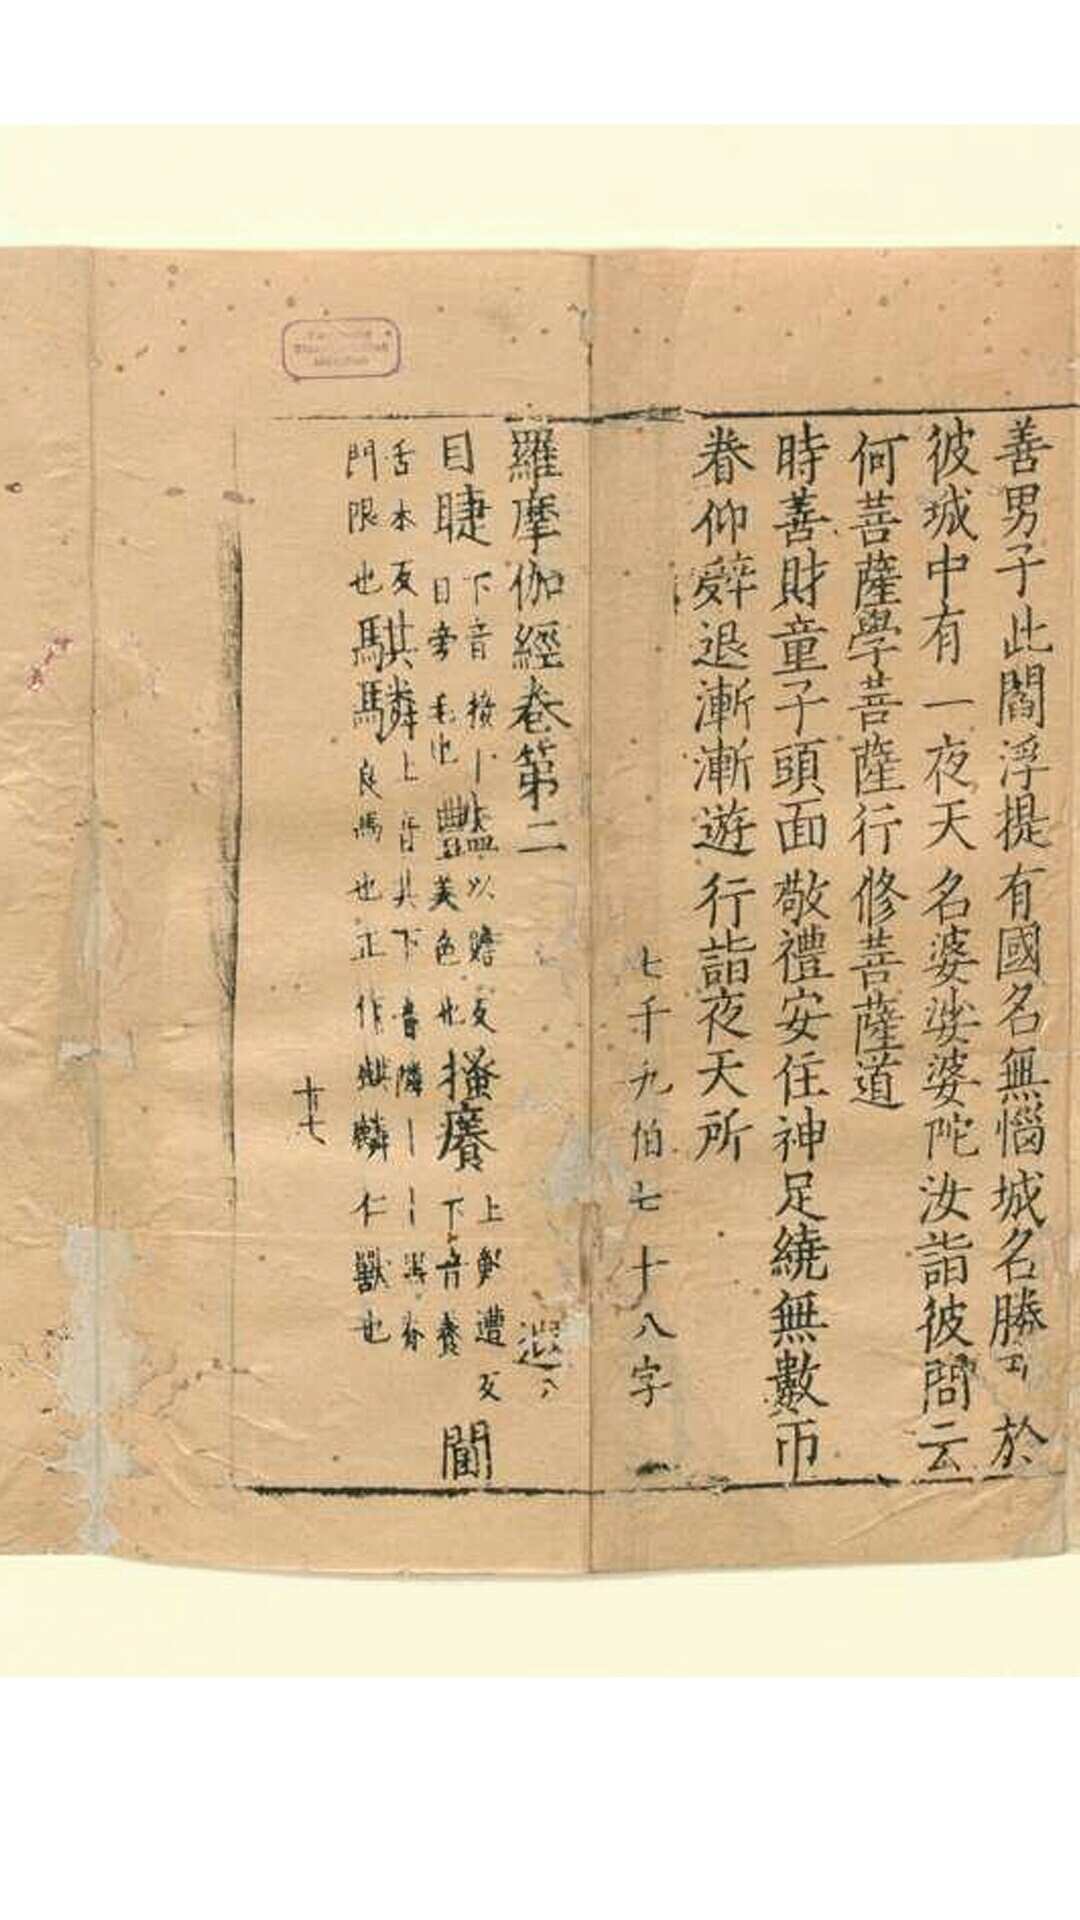 善男子此閻浮提有國名無惱城名勝於
彼城中有一夜天名婆娑婆陀汝詣彼問云
何菩薩學菩薩行修菩薩道
時善財童子頭面敬禮安住神足繞無數帀
眷仰辤退漸漸遊行詣夜天所
七千九伯七十八字
羅摩伽經卷第二
遐八
目睫下音接丨目旁毛也豔以贍反美色也搔癢上蘇遭反下音養閫
苦本反門限也騏驎上音其下音隣丨丨良馬也正作麒麟仁獸也
十七